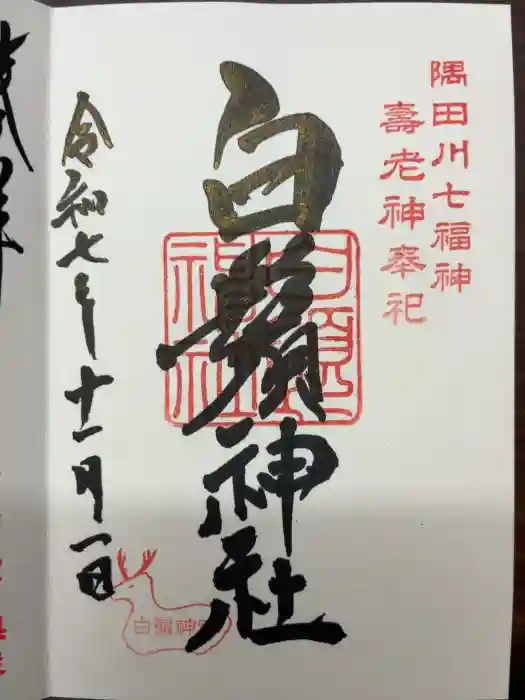 隅田川七福神
壽老神奉祀
白鬚神社
令和七年十一月一日
白鬚神社